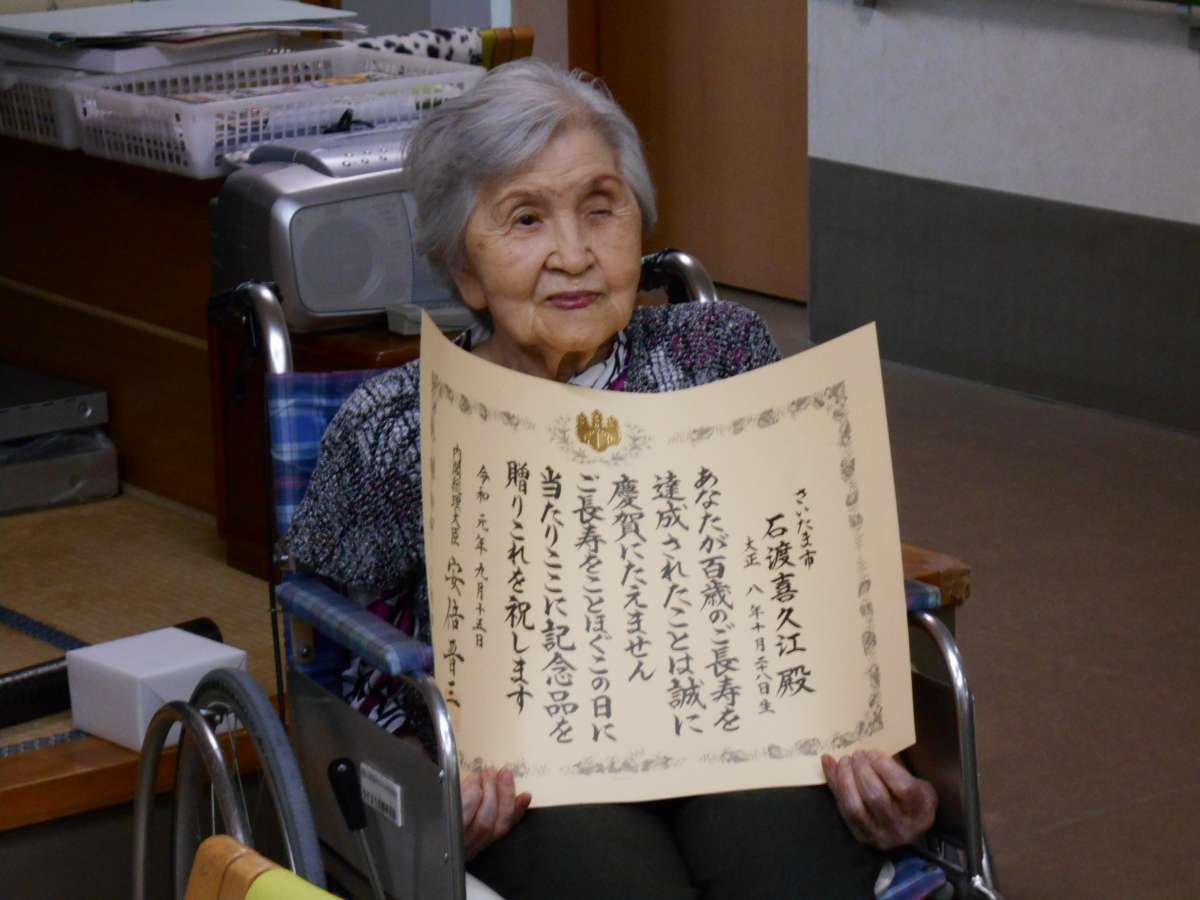 さいたま市
石渡喜久江殿
大正 八年十月二十八日生
あなたが百歳のご長寿を
達成されたことは誠に
慶賀にたえません
ご長寿をことほぐこの日に
当たりここに記念品を
贈りこれを祝します
令和元年九月十五日
内閣総理大臣 安倍晋三